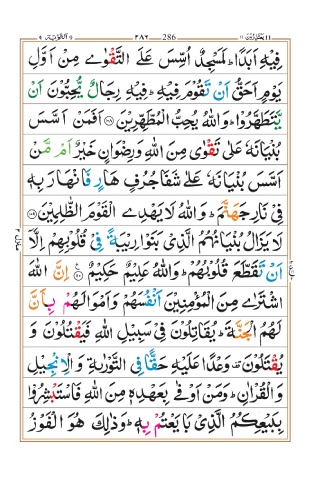 التوبة ٩ ٢٨٦ 286 يعتذرون ١١
فِيْهِ اَبَدًا ؕ لَمَسْجِدٌ اُسِّسَ عَلَى التَّقْوٰى مِنْ اَوَّلِ
يَوْمٍ اَحَقُّ اَنْ تَقُوْمَ فِيْهِ ؕ فِيْهِ رِجَالٌ يُّحِبُّوْنَ اَنْ
يَّتَطَهَّرُوْا ؕ وَاللّٰهُ يُحِبُّ الْمُطَّهِّرِيْنَ ﴿۱۰۸﴾ اَفَمَنْ اَسَّسَ
بُنْيَانَهٗ عَلٰى تَقْوٰى مِنَ اللّٰهِ وَرِضْوَانٍ خَيْرٌ اَمْ مَّنْ
اَسَّسَ بُنْيَانَهٗ عَلٰى شَفَا جُرُفٍ هَارٍ فَانْهَارَ بِهٖ
فِيْ نَارِ جَهَنَّمَ ؕ وَاللّٰهُ لَا يَهْدِى الْقَوْمَ الظّٰلِمِيْنَ ﴿۱۰۹﴾
لَا يَزَالُ بُنْيَانُهُمُ الَّذِيْ بَنَوْا رِيْبَةً فِيْ قُلُوْبِهِمْ اِلَّاۤ
اَنْ تَقَطَّعَ قُلُوْبُهُمْ ؕ وَاللّٰهُ عَلِيْمٌ حَكِيْمٌ ﴿۱۱۰﴾ اِنَّ اللّٰهَ
اشْتَرٰى مِنَ الْمُؤْمِنِيْنَ اَنْفُسَهُمْ وَاَمْوَالَهُمْ بِاَنَّ
لَهُمُ الْجَنَّةَ ؕ يُقَاتِلُوْنَ فِيْ سَبِيْلِ اللّٰهِ فَيَقْتُلُوْنَ وَ
يُقْتَلُوْنَ وَعْدًا عَلَيْهِ حَقًّا فِى التَّوْرٰىةِ وَالْاِنْجِيْلِ
وَالْقُرْاٰنِ ؕ وَمَنْ اَوْفٰى بِعَهْدِهٖ مِنَ اللّٰهِ فَاسْتَبْشِرُوْا
بِبَيْعِكُمُ الَّذِيْ بَايَعْتُمْ بِهٖ ؕ وَذٰلِكَ هُوَ الْفَوْزُ